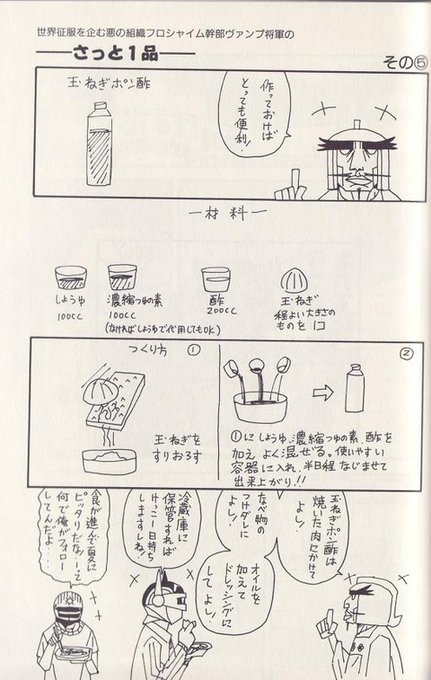 世界征服を企む悪の組織フロシャイム幹部ヴァンプ将軍の
さっと1品
その⑤
玉ねぎポン酢
作っておけば
とっても便利!
ー材料ー
しょうゆ
100cc
濃縮つゆの素
100cc
(なければしょうゆで代用してもOK)
酢
200cc
玉ねぎ
程よい大きさの
ものを1コ
つくり方
①
玉ねぎを
すりおろす
②
①にしょうゆ、濃縮つゆの素、酢を
加えよく混ぜる。使いやすい
容器に入れ、半日程なじませて
出来上がり!!
玉ねぎポン酢は
焼いた肉にかけて
よし!
なべ物の
つけダレに
よし!
オイルを
加えて
ドレッシングに
してよし!
冷蔵庫に
保管すれば
けっこー日持ち
しますしね!
食が進んで夏に
ピッタリだな!…って
何で俺がフォロー
してんだよ…